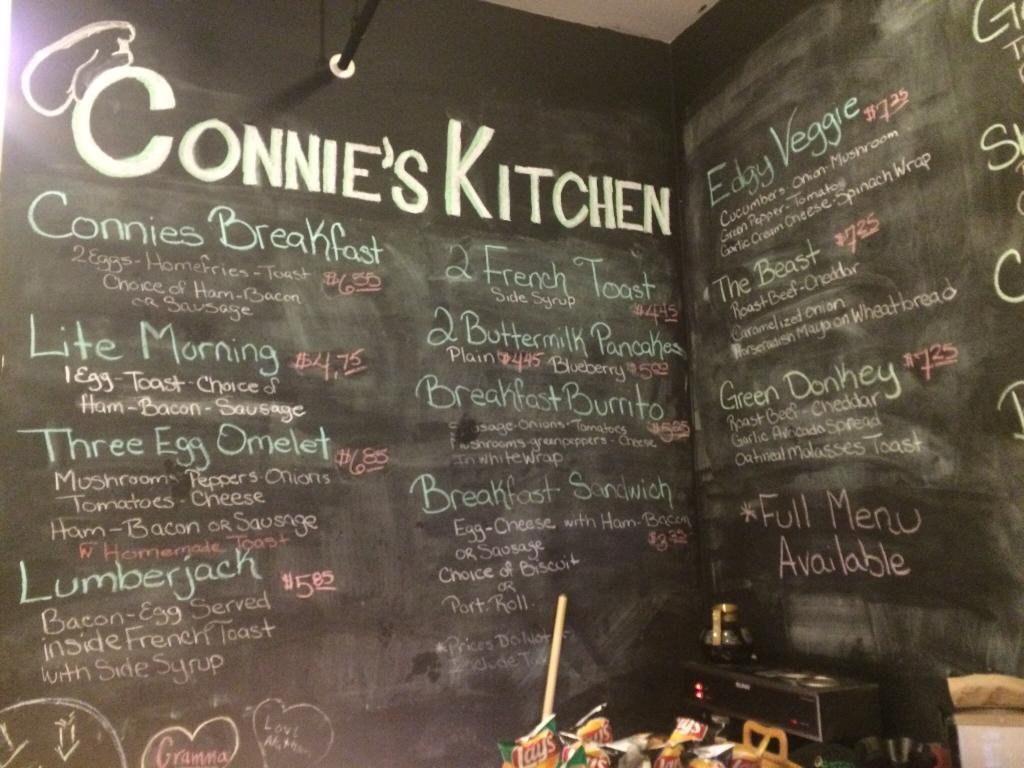 CONNIE'S KITCHEN
Connies Breakfast
2 Eggs - Homefries - Toast
Choice of Ham - Bacon
OR Sausage
Lite Morning $4,75
1 Egg - Toast - Choice of
Ham - Bacon - Sausage
Three Egg Omelet $6.85
Mushrooms Peppers - Onions
Tomatoes - Cheese
Ham - Bacon OR Sausage
W Homemade Toast
Lumberjack $5.85
Bacon - Egg Served
inside French Toast
with Side Syrup
Gramma
Love
2 French Toast
Side Syrup
$4.45
2 Buttermilk Pancakes
Plain $4.45 Blueberry
Breakfast Burrito
Sausage - Onions - Tomatoes
Mushrooms - green peppers - Cheese
In white Wrap
Breakfast Sandwich
Egg - Cheese with Ham - Bacon
OR Sausage
Choice of Biscuit
OR
Port. Roll
*Prices Do Not
Include Tax
Edgy Veggie $7.25
Cucumbers - Onion - Mushroom
Green Pepper - Tomato
Garlic Cream Cheese - Spinach Wrap
The Beast $7.25
Roast Beef - Cheddar
Caramelized Onion
Horseradish Mayo on Wheatbread
Green Donkey $7.25
Roast Beef - Cheddar
Garlic Avocado Spread
Oatmeal Molasses Toast
*Full Menu
Available
Lay's